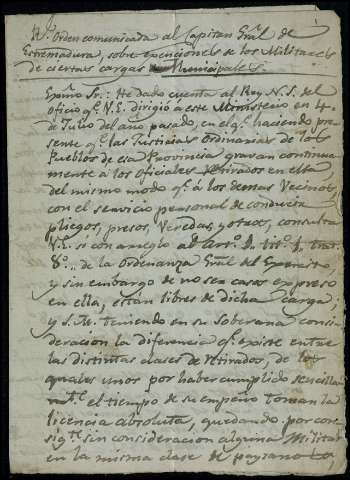 Rl. orden comunicada al Capitan Gral. de
Extremadura, sobre exenciones de los Militares
de ciertas cargas Municipales.
Exmo. Sr.: He dado cuenta al Rey N. S. del
oficio qe. V. E. dirigió a este Ministerio en 4
de Julio del año pasado, en el qe. haciendo pre-
sente qe. las Justicias Ordinarias de los
Pueblos de esa Provincia gravan continua
mente á los oficiales Retirados en ella
del mismo modo qe. á los demas Vecinos
con el servicio personal de conducir
pliegos, presos, Veredas, y otros, consulta
V. E. si con arreglo al Art. 1. tito. 1. trat.
8o. de la Ordenanza Gral. del Exercito,
y sin embargo de no ser casos expreso
en ella, estan libres de dicha carga;
y S. M. teniendo en su Soberana consi-
deracion la diferencia qe. existe entre
las distintas clases de retirados, de los
quales unos por haber cumplido sencilla
mte. el tiempo de su empeño toman la
licencia absoluta, quedando por con-
sigte. sin consideracion alguna Militar
en la misma clase de paysanos